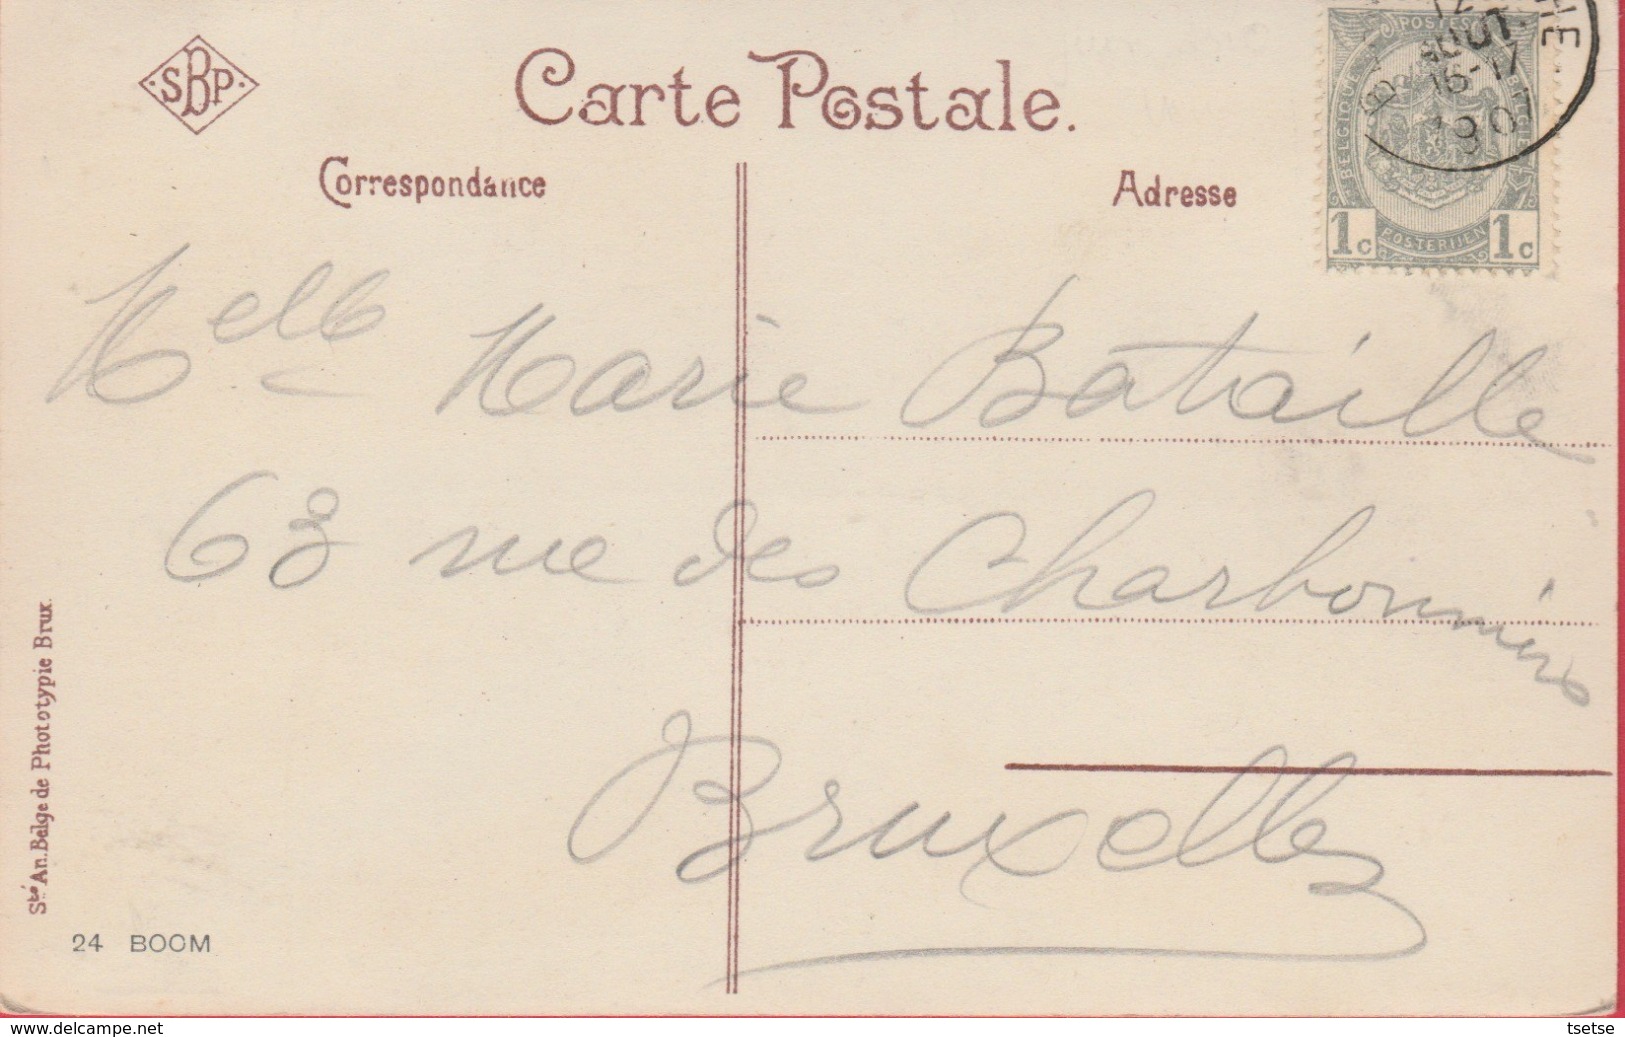 SBP
Carte Postale.
Correspondance
Adresse
POSTES
BELGIQUE
BELGIE
POSTERIJEN
1c 1c
12
AOUT
16-17
1907
HE
Melle Marie Bataille
63 rue des Charbonniers
Bruxelles
Sté An. Belge de Phototypie Brux.
24 BOOM
www.delcampe.net
tsetse